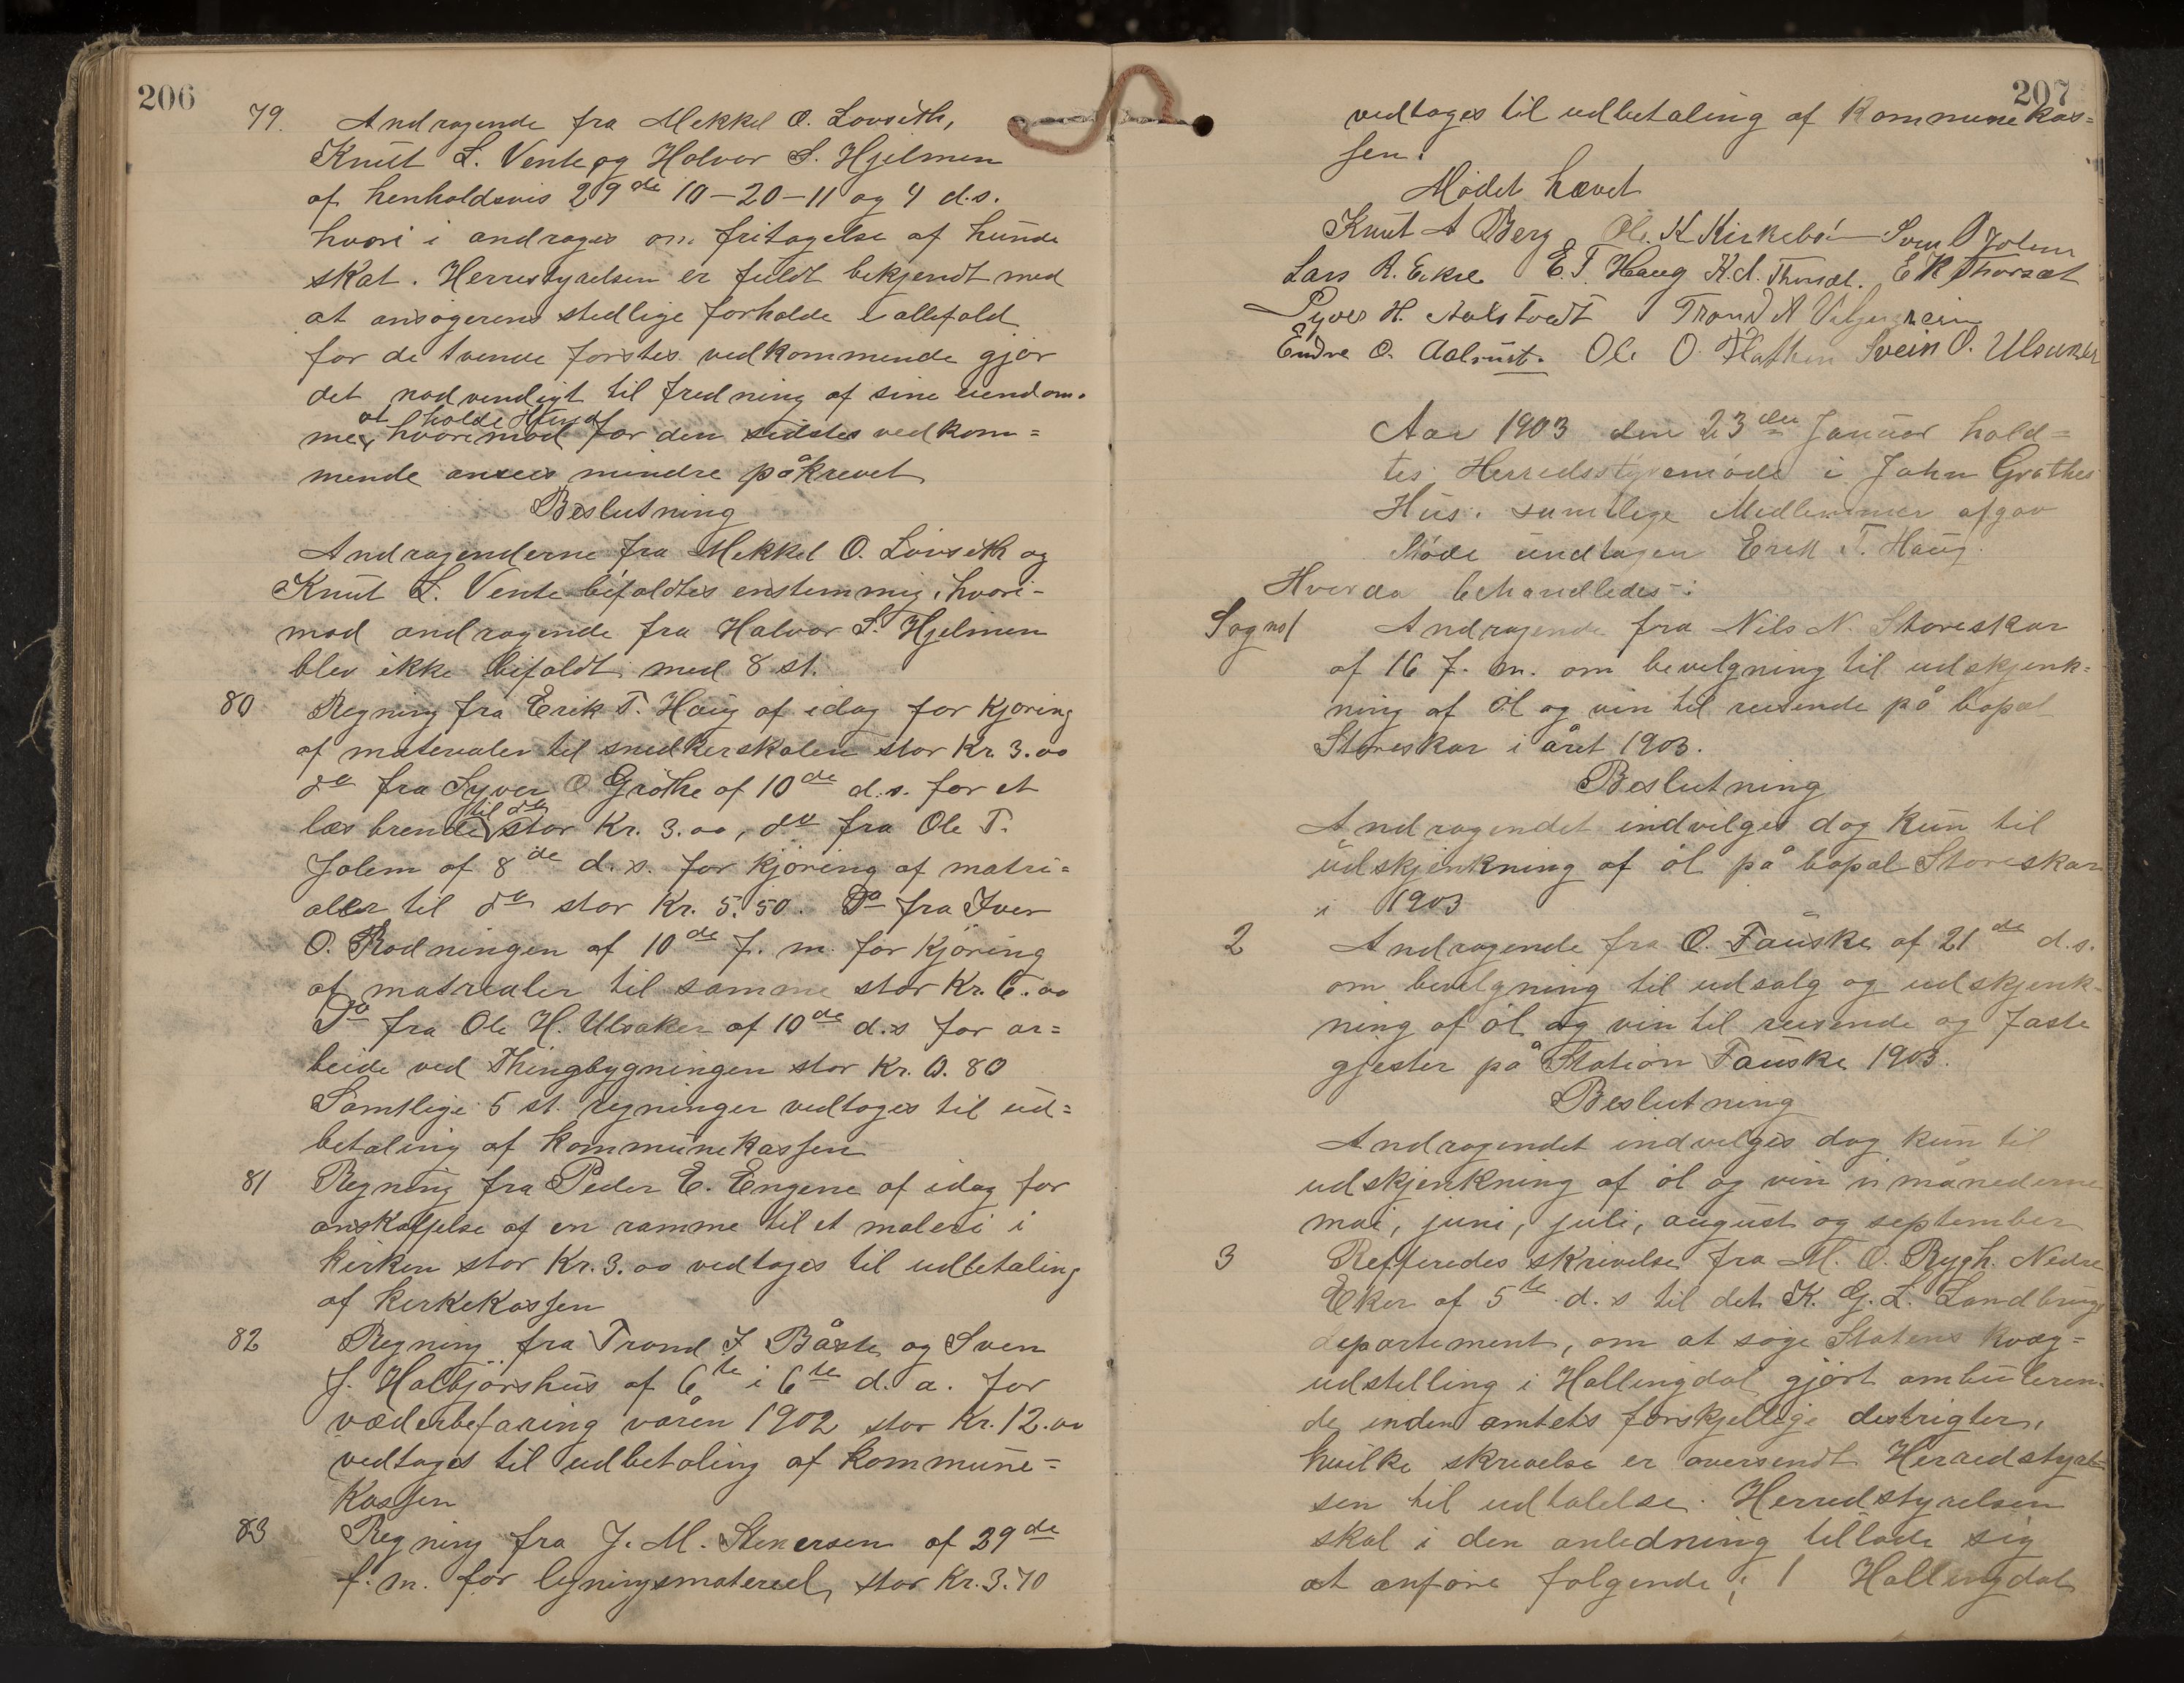 206
79. Andragende fra Mekkel O. Lovseth,
Knut L. Vente og Halvor S. Hjelmen
af henholdsvis 29de 10-20-11 og 4 d.s.
hvori i andrages om fritagelse af hunde
skat. Herrestyrelsen er fuldt bekjendt med
at ansøgerens stedlige forholde i allefald
for de tvende førstes vedkommende gjør
det nødvendigt til fredning af sine eiendom-
at holde Hund
me, hvorimod for den sidstes vedkom=
mende ansees mindre påkrevet
Beslutning
Andragenderne fra Mekkel O. Lovseth og
Knut L. Vente bifaldtes enstemmig, hvori-
mod andragende fra Halvor S. Hjelmen
blev ikke bifaldt med 8 st.
80 Regning fra Erik T. Haug af idag for kjøring
af materialer til snedkerskolen stor Kr. 3.00
do fra Syver O Grøthe af 10de d.s. for et
til do
læs brende stor Kr. 3.00, do fra Ole T.
Jolem af 8de d.s. for kjøring af matri=
aller til do stor Kr. 5.50. Do fra Iver
O. Rodningen af 10de f. m. for kjøring
af matrealer til samme stor Kr. 6.00
Do fra Ole H. Ulsaker af 10de d.s for ar=
beide ved Thingbygningen stor Kr. 0.80
Samtlige 5 st. regninger vedtages til ud=
betaling af kommunekassen
81 Regning fra Peder E. Engene af idag for
anskaffelse af en ramme til et maleri i
kirken stor Kr. 3.00 vedtages til udbetaling
af kirkekassen
82 Regning fra Trond I. Båste og Sven
J. Halbjørshus af 6te i 6te d. a. for
væderbefaring våren 1902 stor Kr. 12.00
vedtages til udbetaling af kommune=
kassen
83 Regning fra J. M. Stenersen af 29de
f. m. for ligningsmateriel, stor Kr. 3.70
207
vedtages til udbetaling af Kommunekas=
sen.
Mødet hævet
Knut A Berg Ole K Kirkebø Sven O Jolem
Lars R. Ekre E. T. Haug K. A. Thorsæt. E K Thorsæt
Syver H. Aalstvedt Trond A
Endre O. Aalrust. Ole O. Flathen Svein O. Ulsaker
Aar 1903 den 23de Januar hold=
tes Herredsstyremøde i John Grøthes
Hus. samtlige Medlemmer afgav
Møde undtagen Erik T. Haug.
Hver da behandledes:
Sag no 1 Andragende fra Nils N. Storeskar
af 16 f. m. om bevilgning til udskjenk-
ning af øl og vin til reisende på bopæl
Storeskar i året 1903.
Beslutning
Andragendet indvilges dog kun til
udskjenkning af øl på bopæl Storeskar
i 1903
2 Andragende fra O. Fauske af 21de d.s.
om bevilgning til udsalg og udskjenk-
ning af øl og vin til reisende og faste
gjester på Station Fauske 1903.
Beslutning
Andragendet indvilges dog kun til
udskjenkning af øl og vin i månederne
mai, juni, juli, august og september
3 Refferedes skrivelse fra M. O. Rygh. Nedre
Eker af 5te d.s til det K. G. L. Landbrugs
departement, om at søge Statens kvæg=
udstilling i Hallingdal gjørt ambuleren-
de inden amtets forskjellige destrigter,
hvilke skrivelse er oversendt Herredstyrel-
sen til udtalelse. Herredstyrelsen
skal i den anledning tillade sig
at anføre følgende; 1 Hallingdal